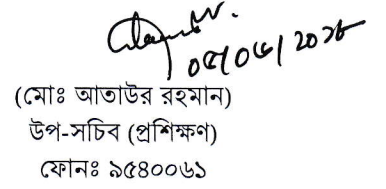 ০৫/০৬/২০১৮
(মোঃ আতাউর রহমান)
উপ-সচিব (প্রশিক্ষণ)
ফোনঃ ৯৫৪০০৬১